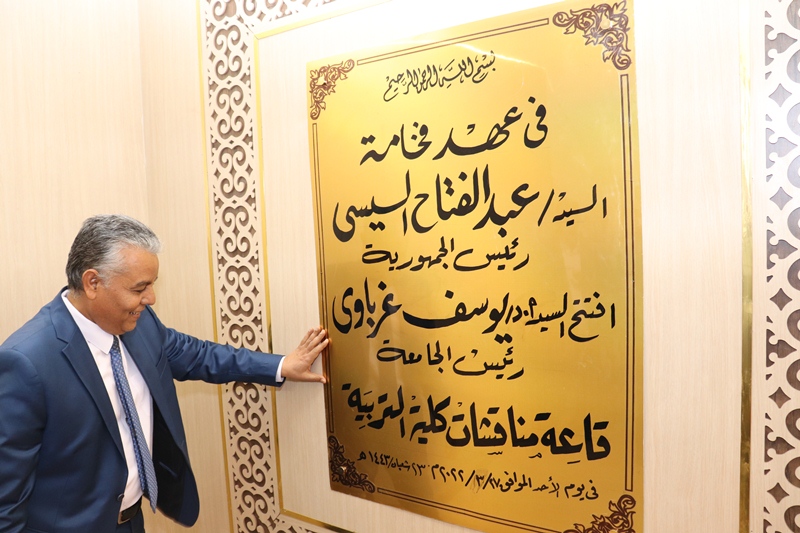 بسم الله الرحمن الرحيم
فى عهد فخامة
السيد/ عبد الفتاح السيسى
رئيس الجمهورية
افتتح السيد أ.د/ يوسف غرباوى
رئيس الجامعة
قاعة مناقشات كلية التربية
فى يوم الأحد الموافق ٢٠٢٢/٣/٢٧م ٢٣ شعبان ١٤٤٣هـ